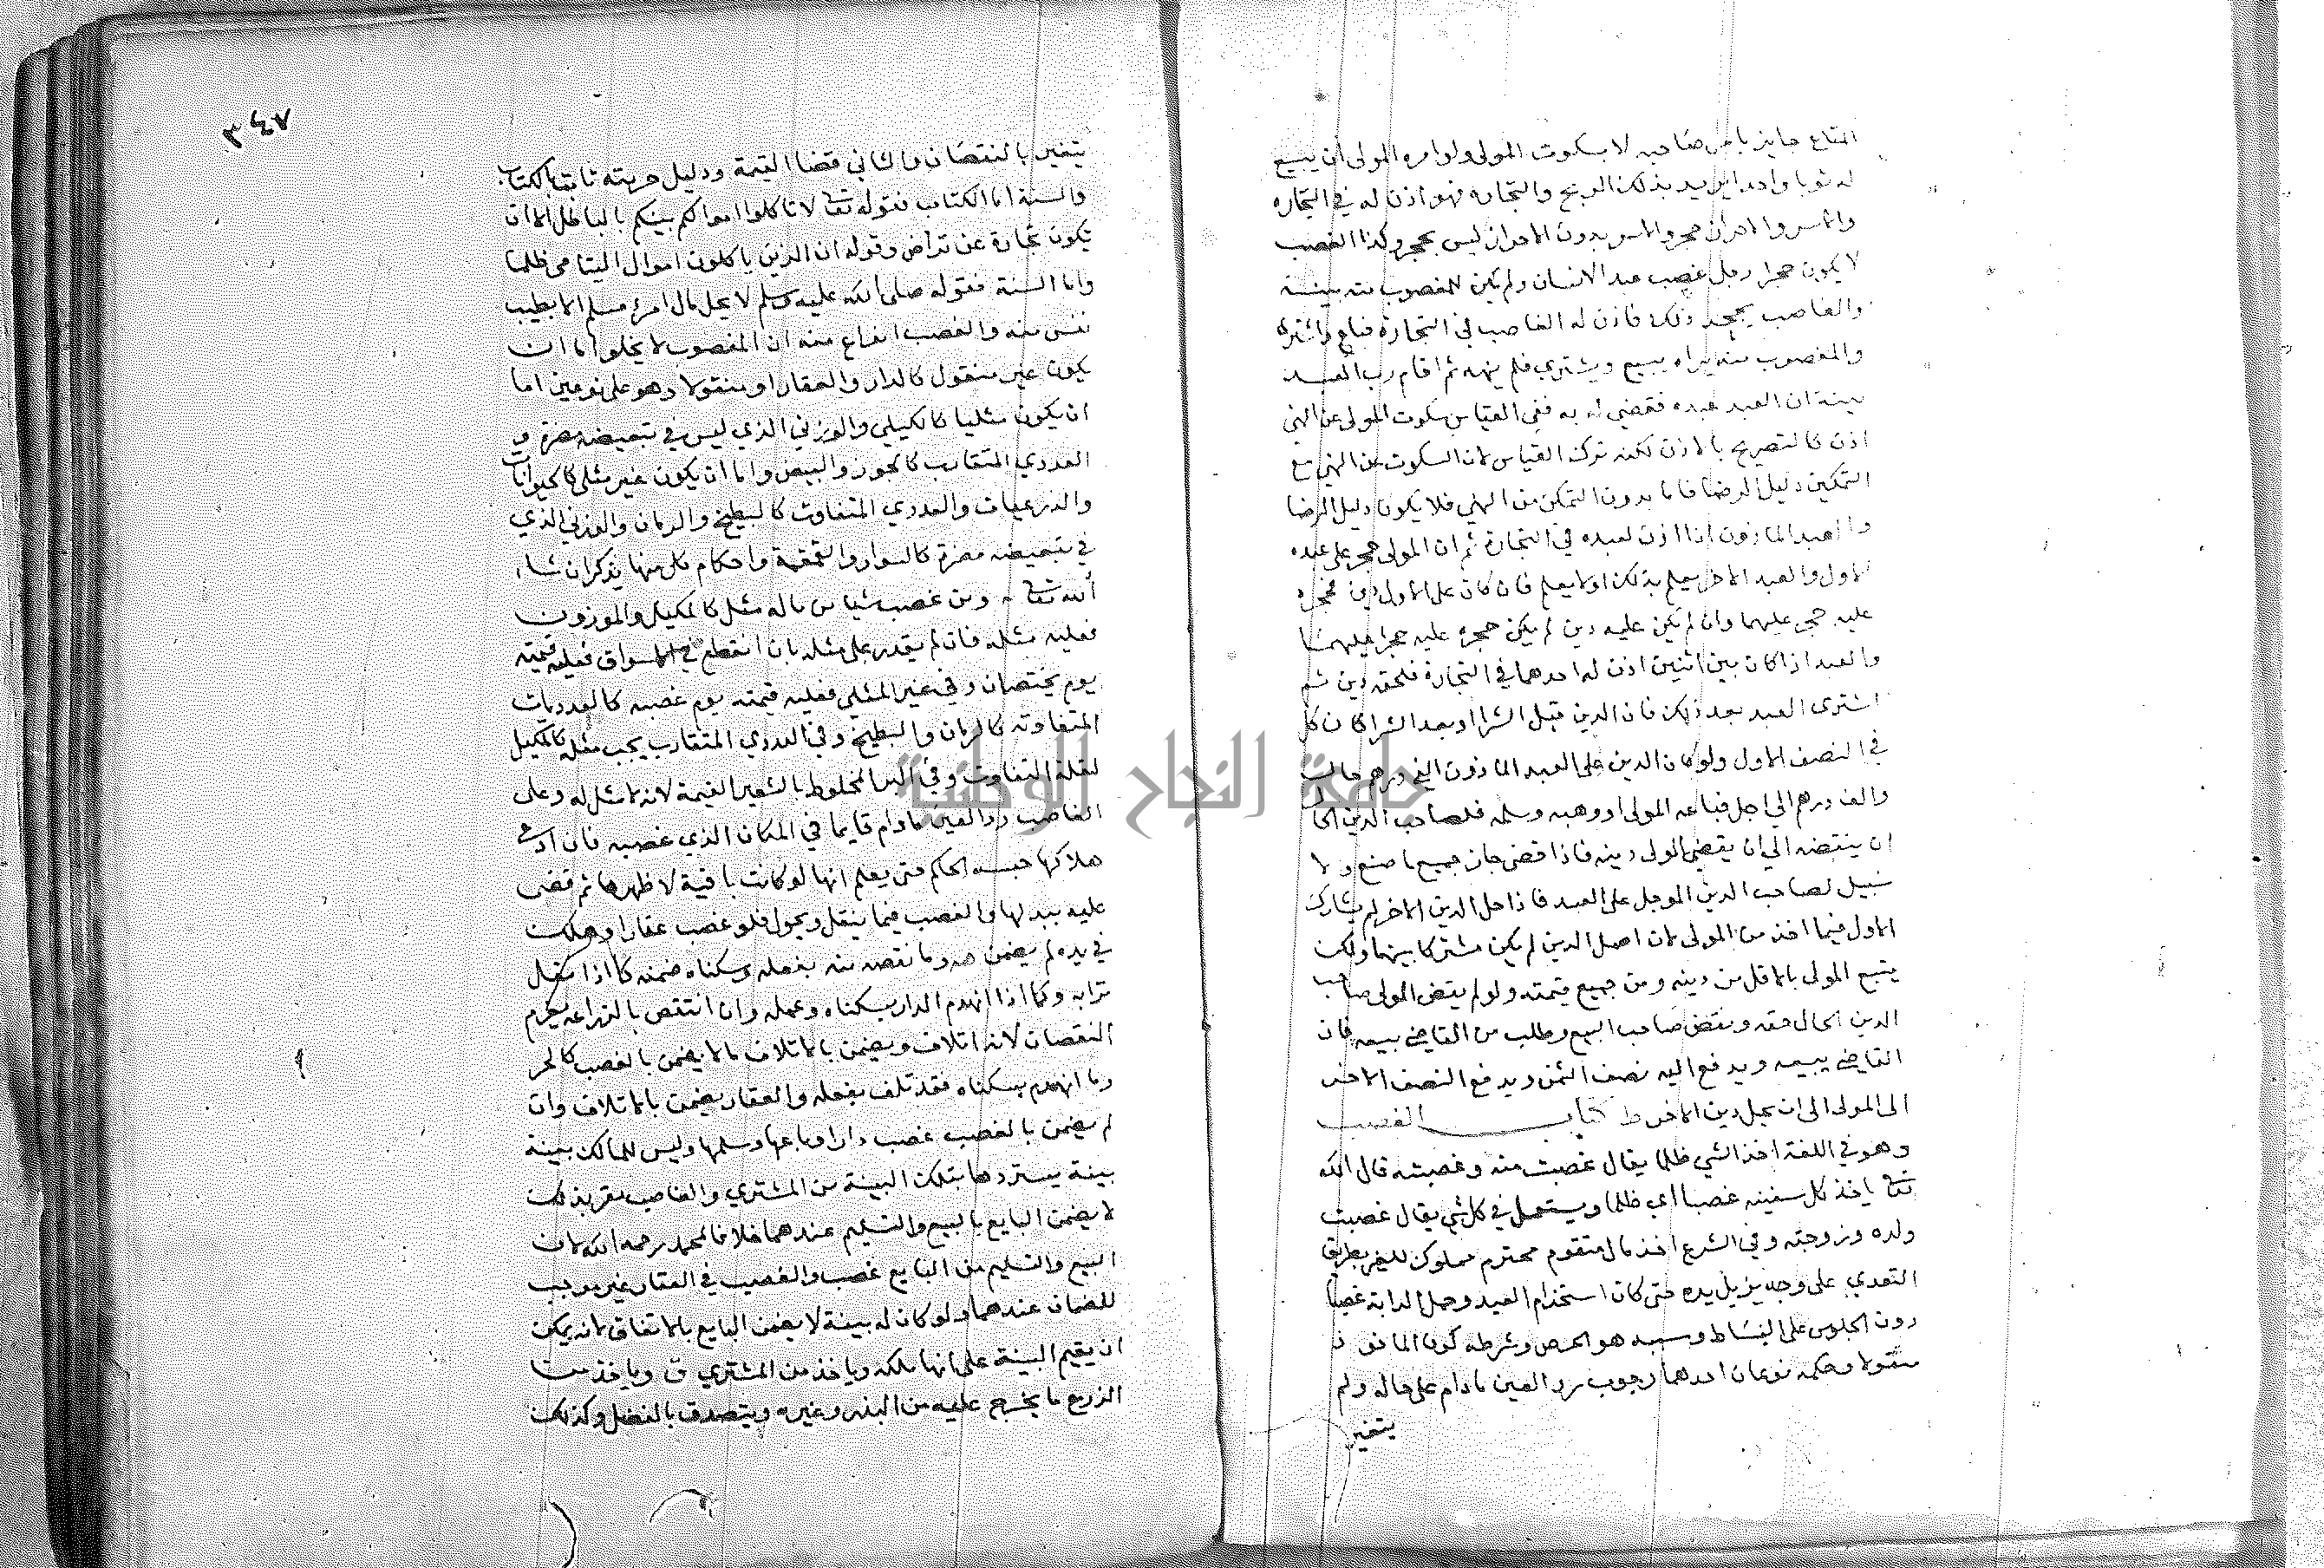 المتاع جايز بامر صاحبه لا بسكوت المولى ولو امره المولى ان يبيع
له ثوبا واحدا يريد بذلك الربح والتجارة فهو اذن له في التجارة
والاسر والاحراز حجر والاسر بدون الاحراز ليس بحجر وكذا الغصب
لا يكون حجرا رجل غصب عبد الانسان ولم يكن للمغصوب منه بينة
والغاصب يجحد ذلك فاذن له الغاصب في التجارة فباع واشترى
والمغصوب منه يراه يبيع ويشتري فلم ينهه ثم اقام رب العبد
بينة ان العبد عبده فقضي له به ففي القياس سكوت المولى عن النهي
اذن كالتصريح بالاذن لكنه ترك القياس لان السكوت عن النهي مع
التمكين دليل الرضا فاما بدون التمكن من النهي فلا يكون دليل الرضا
والعبد الماذون اذا اذن لعبده في التجارة ثم ان المولى حجر على عبده
الاول والعبد الاخر يعلم بذلك او لا يعلم فان كان على الاول دين فحجره
عليه حجر عليهما وان لم يكن عليه دين لم يكن حجره عليه حجرا عليهما
والعبد اذا كان بين اثنين اذن له احدهما في التجارة فلحقه دين ثم
اشترى العبد بعد ذلك فان الدين قبل الشرا او بعد الشرا كان كل
في النصف الاول ولو كان الدين على العبد الماذون الفي درهم حالت
والف درهم الى اجل فباعه المولى او وهبه وسلمه فلصاحب الدين الحال
ان ينقضه الى ان يقضي المولى دينه فاذا قضى جاز جميع ما صنع ولا
سبيل لصاحب الدين الموجل على العبد فاذا حل الدين الاخر لم يشارك
الاول فيما اخذ من المولى لان اصل الدين لم يكن مشتركا بينهما ولكن
يتبع المولى بالاقل من دينه ومن جميع قيمته ولو لم يقض المولى صاحب
الدين الحال حقه ونقض صاحب البيع وطلب من القاضي بيعه فان
القاضي يبيعه ويدفع اليه نصف الثمن ويدفع النصف الاخر
الى المولى الى ان يحل دين الاخر ط كتاب الغصب
وهو في اللغة اخذ الشي ظلما يقال غصبت منه وغصبته قال الله
تعالى ياخذ كل سفينة غصبا اي ظلما ويستعمل في كل شي يقال غصبت
ولده وزوجته وفي الشرع اخذ مال متقوم محترم مملوك للغير بطريق
التعدي على وجه يزيل يده حتى كان استخدام العبد وحمل الدابة غصبا
دون الجلوس على البساط وسببه هو الحرص وشرطه كون الماخوذ
منقولا وحكمه نوعان احدهما وجوب رد العين مادام على حاله ولم
يتغير
٣٤٧
يتغير بالنقصان والثاني قضا القيمة ودليل حرمته ثابت بالكتاب
والسنة اما الكتاب فقوله تعالى لا تاكلوا اموالكم بينكم بالباطل الا ان
تكون تجارة عن تراض وقوله ان الذين ياكلون اموال اليتامى ظلما
واما السنة فقوله صلى الله عليه وسلم لا يحل مال امرئ مسلم الا بطيب
نفس منه والغصب انواع منه ان المغصوب لا يخلوا اما ان
يكون غير منقول كالدار والعقار او منقولا وهو على نوعين اما
ان يكون مثليا كالكيلي والوزني الذي ليس في تبعيضه مضرة و
العددي المتقارب كالجوز والبيض واما ان يكون غير مثلي كالحيوانات
والذرعيات والعددي المتفاوت كالبطيخ والرمان والوزني الذي
في تبعيضه مضرة كالسوار والقمقمة واحكام كل منها يذكر ان شاء
الله تعالى ومن غصب شيا من ماله مثل كالمكيل والموزون
فعليه مثله فان لم يقدر على مثله بان انقطع في الاسواق فعليه قيمته
يوم يختصمان وفي غير المثلي فعليه قيمته يوم غصبه كالعدديات
المتفاوتة كالرمان والبطيخ وفي العددي المتقارب يجب مثله كالمكيل
لقلة التفاوت وفي البر المخلوط بالشعير القيمة لانه لا مثل له وعلى
الغاصب رد العين مادام قايما في المكان الذي غصبه فان ادعى
هلاكها حبسه الحاكم حتى يعلم انها لو كانت باقية لاظهرها ثم قضى
عليه ببدلها والغصب فيما ينقل ويحول فلو غصب عقارا وهلك
في يده لم يضمن هه وما نقصه منه بفعله وسكناه ضمنه كما اذا نقل
ترابه وكما اذا انهدم الدار بسكناه وعمله وان انتقص بالزراعة يغرم
النقصان لانه اتلاف ويضمن بالاتلاف ما لا يضمن بالغصب كالحر
وما انهدم بسكناه فقد تلف بفعله والعقار يضمن بالاتلاف وان
لم يضمن بالغصب غصب دارا وباعها وسلمها وليس للمالك بينة
بينة يستردها بتلك البينة من المشتري والغاصب مقر بذلك
لا يضمن البايع بالبيع والتسليم عندهما خلافا لمحمد رحمه الله لان
البيع والتسليم من البايع غصب والغصب في العقار غير موجب
للضمان عندهما ولو كان له بينة لا يضمن البايع بالاتفاق لانه يمكن
ان يقيم البينة على انها ملكه وياخذ من المشتري ق وياخذ من
الزرع ما يخرج عليه من البذر وغيره ويتصدق بالفضل وكذلك
جامعة النجاح الوطنية